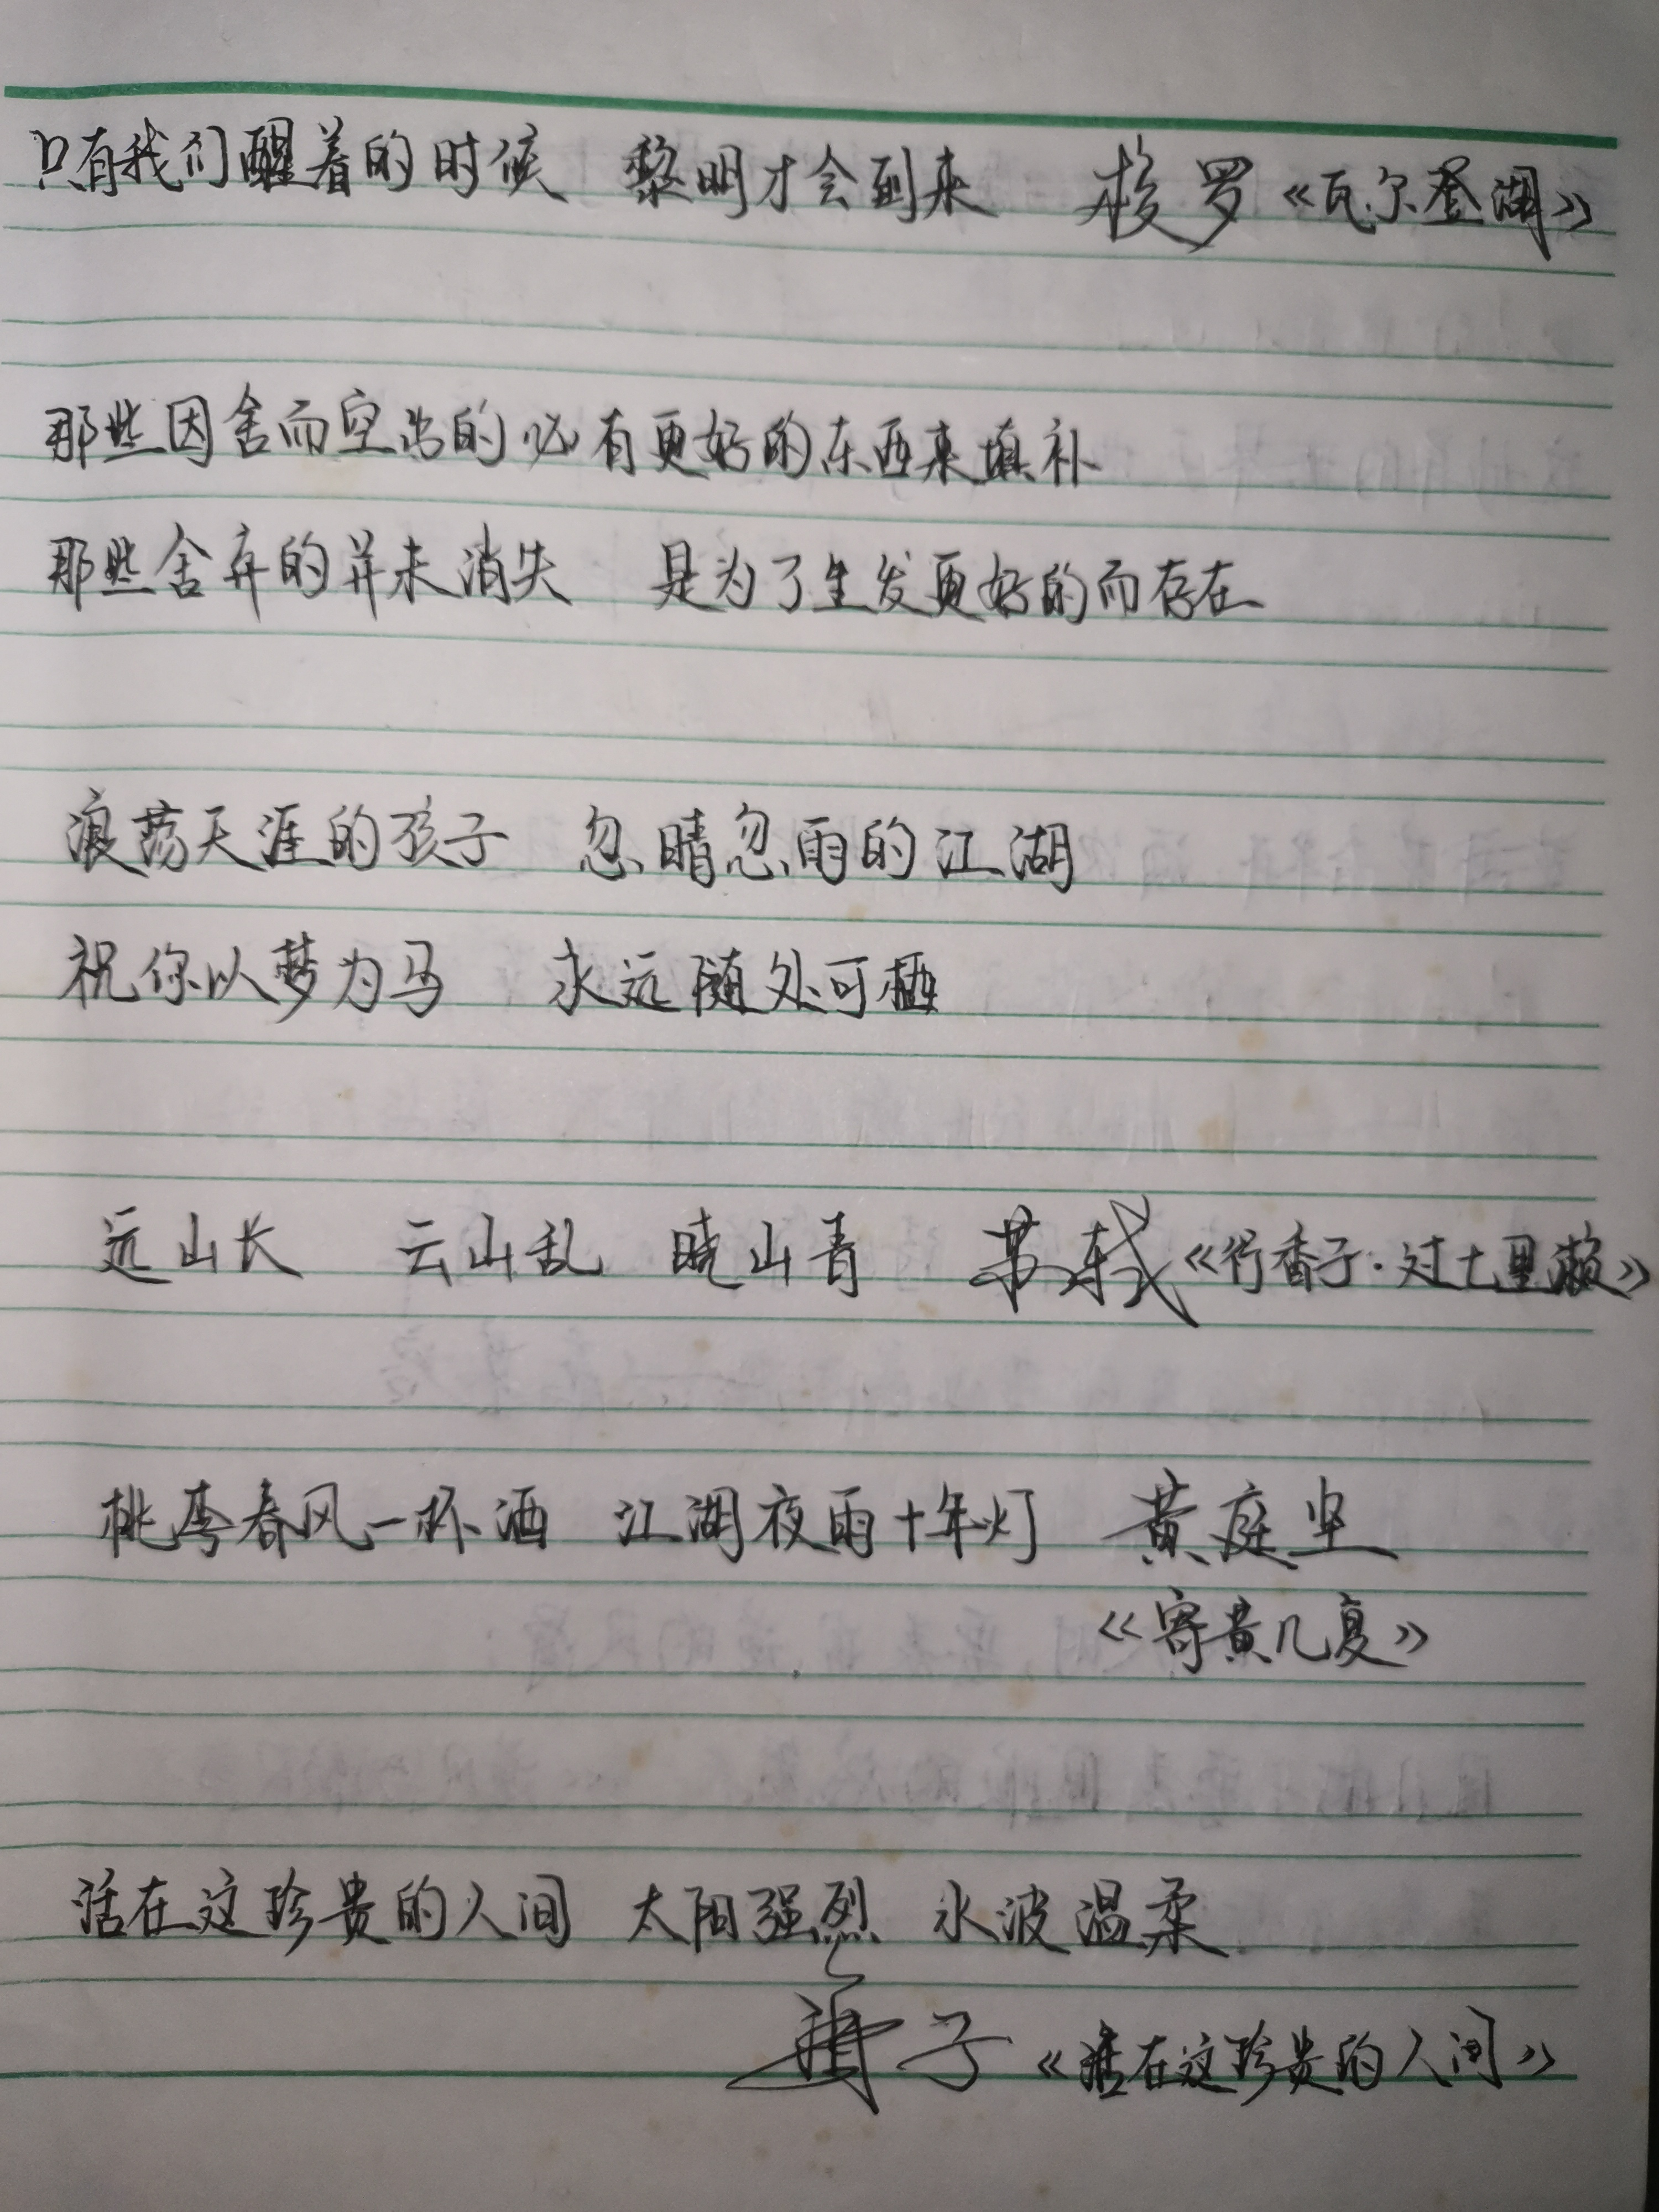 只有我们醒着的时候 黎明才会到来 梭罗《瓦尔登湖》
那些因舍而空出的必有更好的东西来填补
那些舍弃的并未消失 是为了生发更好的而存在
浪荡天涯的孩子 忽晴忽雨的江湖
祝你以梦为马 永远随处可栖
远山长 云山乱 晓山青 苏轼《行香子·过七里濑》
桃李春风一杯酒 江湖夜雨十年灯 黄庭坚
《寄黄几复》
活在这珍贵的人间 太阳强烈 水波温柔
海子《活在这珍贵的人间》